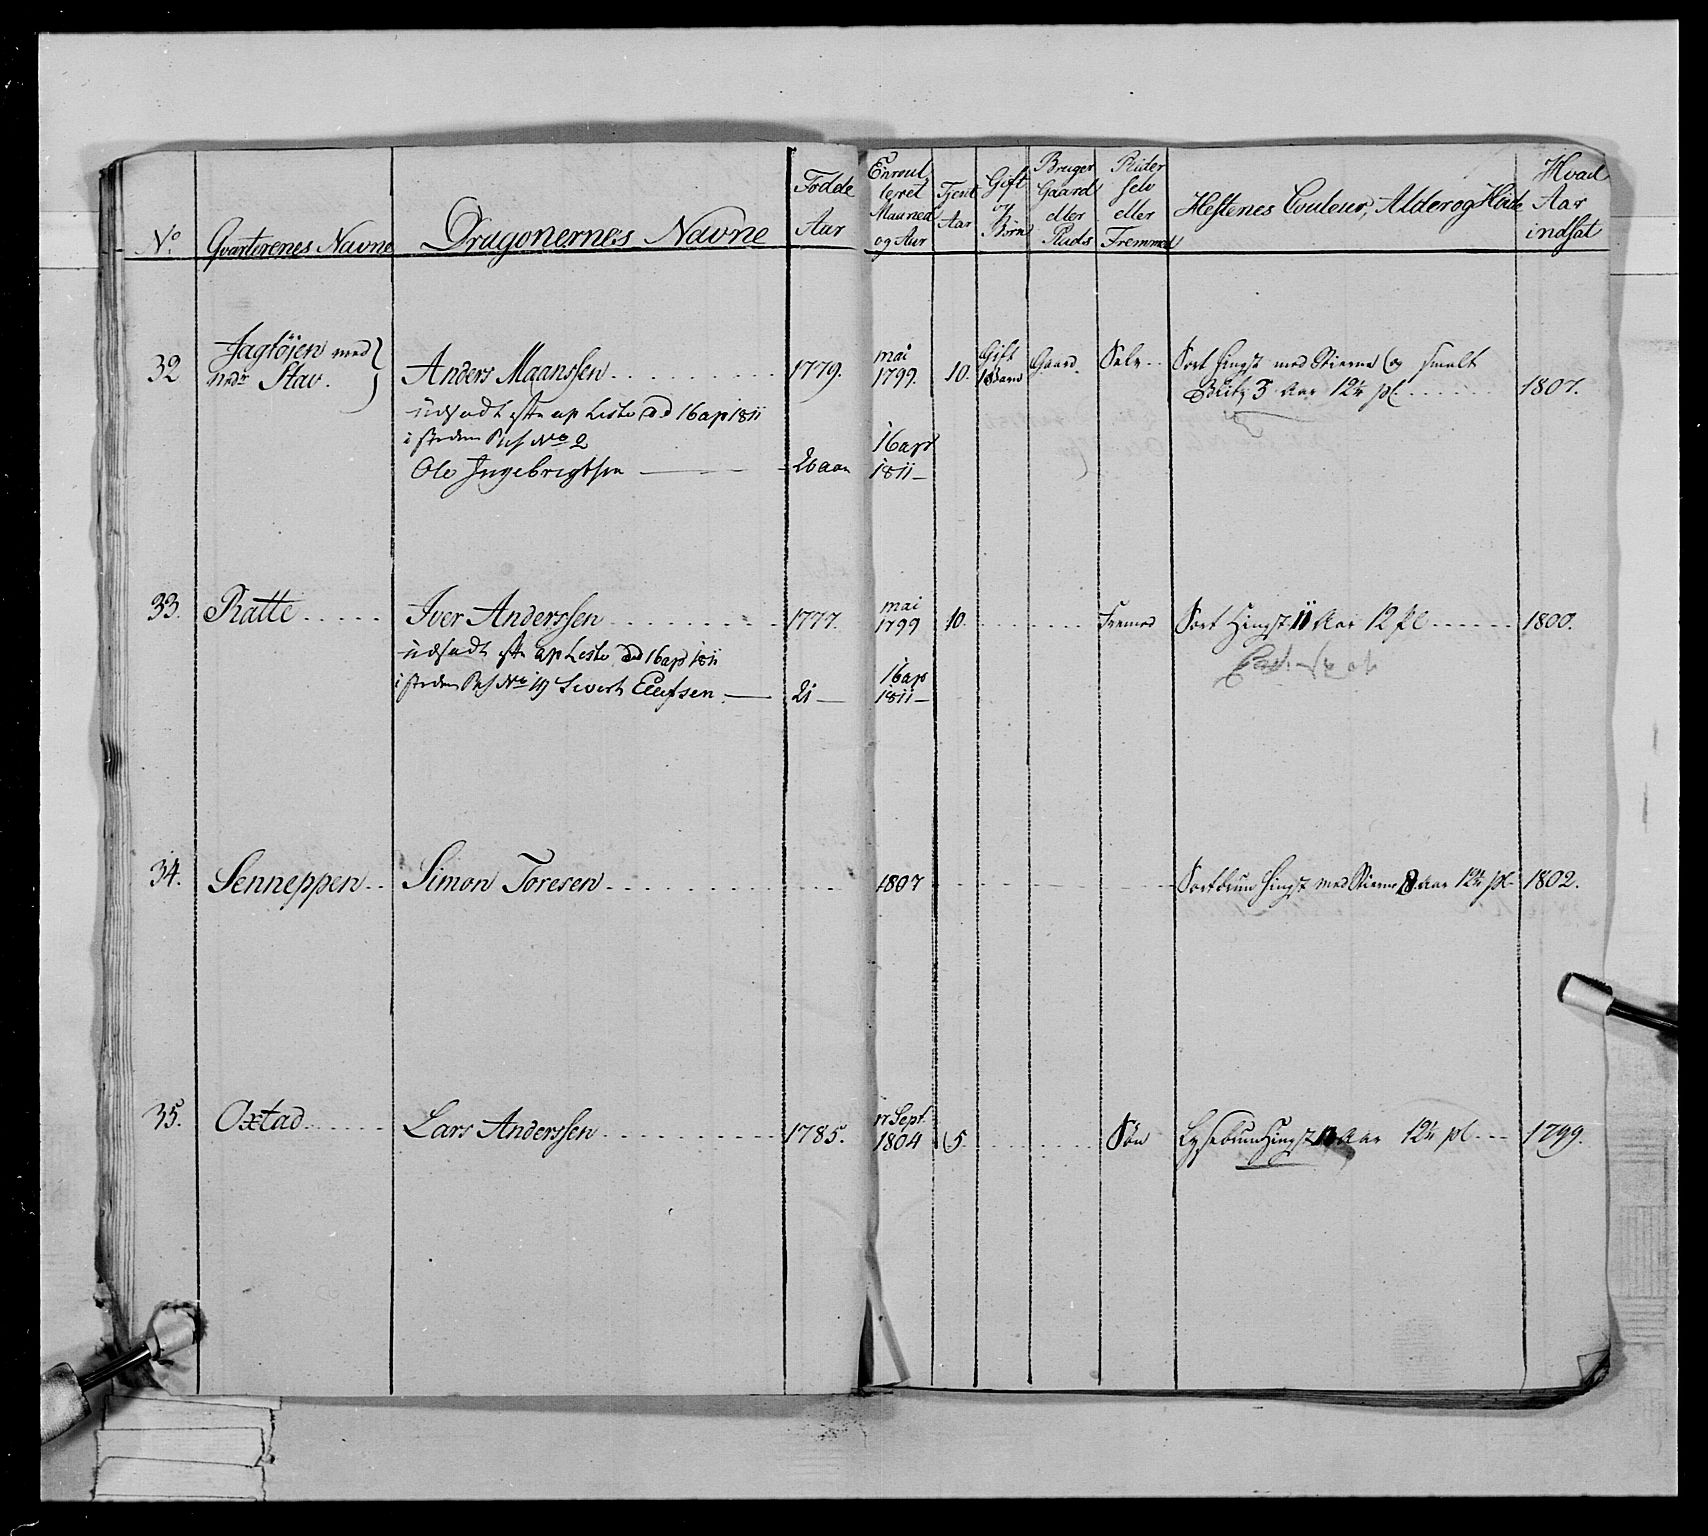 No. Qvarterenes Navne Dragonernes Navne Fødde Aar Enroulleret Maaned og Aar Tjent Aar Gift og Børn Bruger Gaard eller Plads Rider selv eller Fremmed Hestenes Couleur, Alder og Höide Hvad Aar indsat
32 Jagtöjen med nedr Stav. Anders Maanssen 1779. mai 1799. 10. Gift 1 Barn Gaard. Selv Sort Hingst med Stierne og smalt
Blitz 3 Aar 12 qr pl 1807.
udsadt efter ap Liste dd 16 ap 1811
i steden Res No 2 16 apr
Ole Ingebrigtsen 26 aar 1811
33. Ratte Iver Anderssen 1777. mai 1799 10. Fremed Sort Hingst 11 Aar 12 pl 1800.
udsadt efter ap Liste dd 16 apr 1811
i steden Res No 19 Sivert Elefsen 21 16 ap 1811
34. Senneppen Simon Toresen 1807 Sortbrun Hingst med Stierne 8 Aar 12 qr pl 1802.
35. Oxtad Lars Anderssen 1785. 17 Sept. 1804 5. Søn Lysebrun Hingst Aar 12 qr pl 1799.